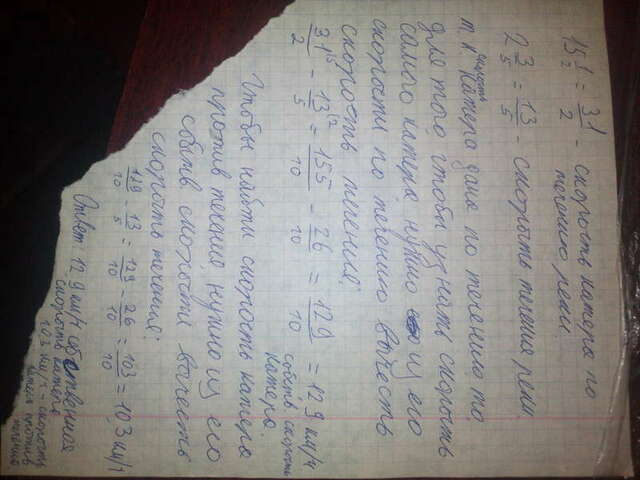 15 1/2 = 31/2 - скорость катера по
течению реки.
2 3/5 = 13/5 - скорость течения реки.
т.к. скорость катера дана по течению, то
для того чтобы узнать скорость
самого катера, нужно из его
скорости по течению вычесть
скорость течения:
31/2 (5 - 13/5 (2 = 155/10 - 26/10 = 129/10 = 12,9 км/ч
собств. скорость
катера.
Чтобы найти скорость катера
против течения, нужно из его
собств. скорости вычесть
скорость течения:
129/10 - 13/5 = 129/10 - 26/10 = 103/10 = 10,3 км/ч
Ответ: 12,9 км/ч собственная
скорость катера
10,3 км/ч - скорость
катера против
течения